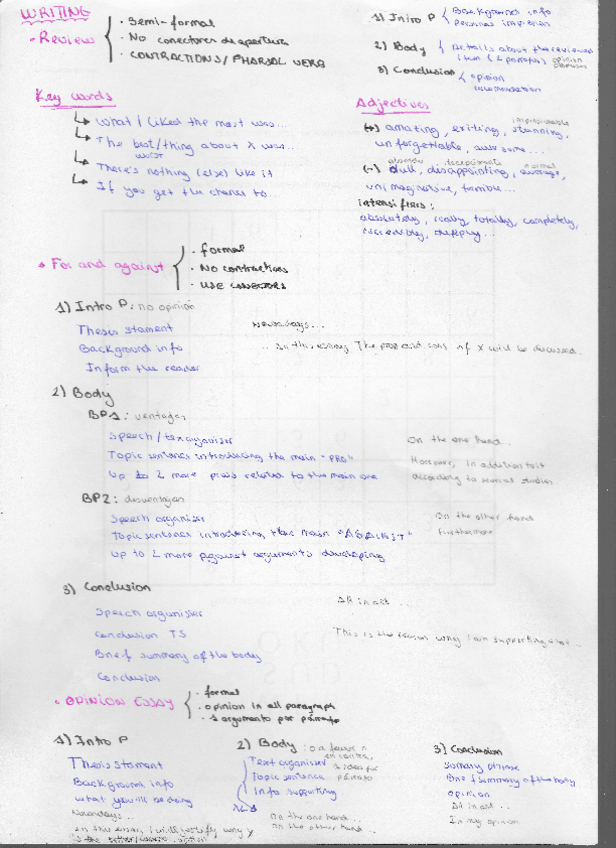 WRITING
• Review
• Semi-formal
• No conectores de apertura
• CONTRACTIONS/PHARSAL VERB
1) Intro P
Background info
Personal impresion
2) Body
Details about the reviewed
item (2 paraphs) opinion
3) Conclusion
opinion
recomendation
Key words
What I liked the most was...
The best/thing about X was...
worst
There's nothing (else) like it
If you get the chance to...
Adjectives
(+) amazing, exiting, stunning,
unforgettable, awesome...
(-) dull, disappointing, average,
unimaginative, terrible...
intensifiers:
absolutely, really, totally, completely,
incredibly, deeply...
• For and against
• formal
• No contractions
• USE CONECTORS
1) Intro P: no opinion
Thesis stament
Nowadays...
Background info
.. In this essay The pros and cons of X will be discussed.
Inform the reader
2) Body
BP1: ventajas
Speech/text organiser
On the one hand...
Topic sentence introducing the main "PRO"
Moreover, in addition to it
Up to 2 more pross related to the main one
according to several studies
BP2: desventajas
Speech organiser
On the other hand
Topic sentence introducing the main "AGAINST"
furthermore
Up to 2 more against arguments developing
3) Conclusion
Speech organiser
All in all ...
Conclusion TS
This is the reason why I am supporting
Brief summary of the body
Conclusion
• OPINION ESSAY
• formal
• opinion in all paragraph
• 1 argumento por párrafo
1) Intro P
Thesis stament
Background info
what you will be doing
Nowadays...
In this essay, I will justify why X
is the
2) Body: o a favor o
en contra,
Text organiser
Topic sentence
párrafo
Info supporting
On the one hand...
On the other hand...
3) Conclusion
Sumary phrase
Brief summary of the body
opinion
All in all ...
In my opinion